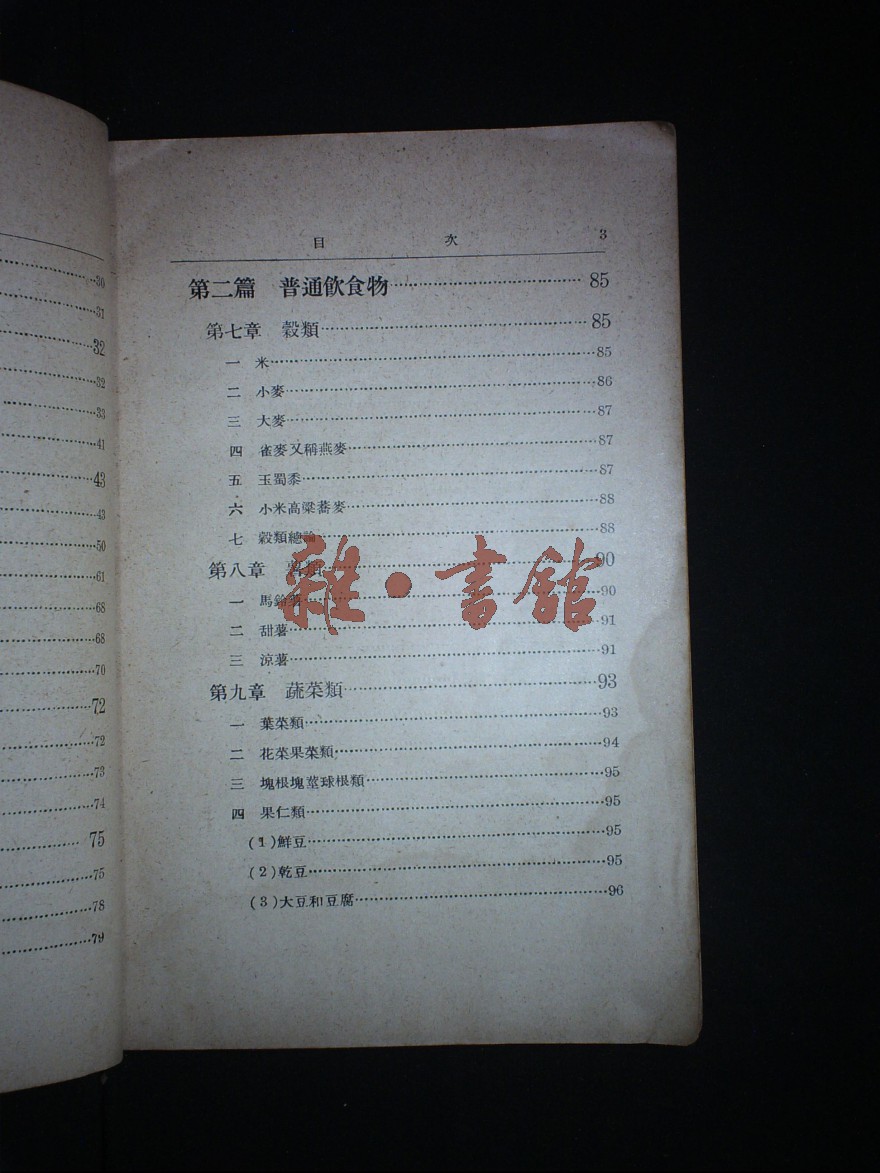 30
31
32
32
33
41
43
43
50
61
68
68
70
72
72
73
74
75
75
78
79
目 次 3
第二篇 普通飲食物 85
第七章 穀類 85
一 米 85
二 小麥 86
三 大麥 87
四 雀麥又稱燕麥 87
五 玉蜀黍 87
六 小米高粱蕎麥 88
七 穀類總論 88
第八章 薯類 90
一 馬鈴薯 90
二 甜薯 91
三 涼薯 91
第九章 蔬菜類 93
一 葉菜類 93
二 花菜果菜類 94
三 塊根塊莖球根類 95
四 果仁類 95
(1)鮮豆 95
(2)乾豆 95
(3)大豆和豆腐 96
雜·書館